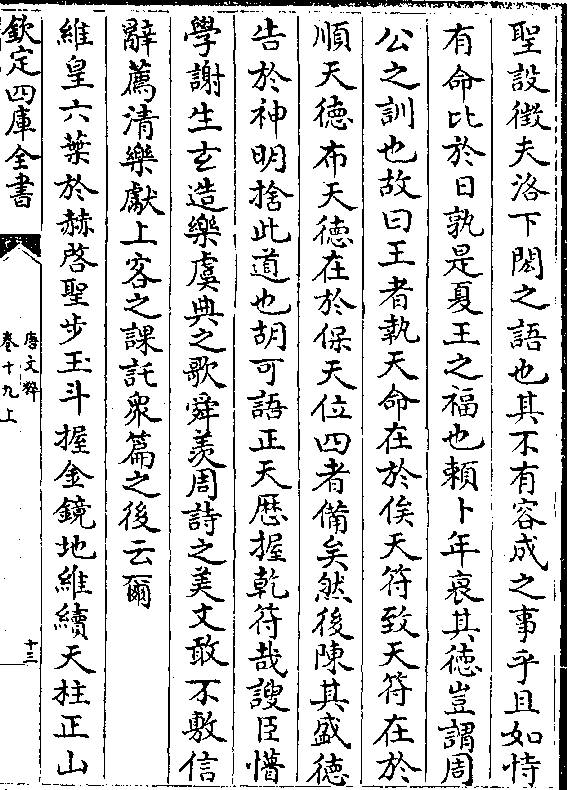 聖設徴夫洛下閎之語也其不有容成之事乎且如恃
有命比於日孰是夏王之福也頼卜年衰其徳豈謂周
公之訓也故曰王者執天命在於俟天符致天符在於
順天徳布天徳在於保天位四者備矣然後陳其盛徳
告於神明捨此道也胡可語正天厯握乾符哉謏臣懵
學謝生𤣥造樂虞典之歌舜羨周詩之美文敢不敷信
辭薦清樂獻上客之課託衆篇之後云爾
維皇六葉於赫啓聖步玉斗握金鏡地維續天柱正山
欽定四庫全書
唐文粹
卷十九上
十三